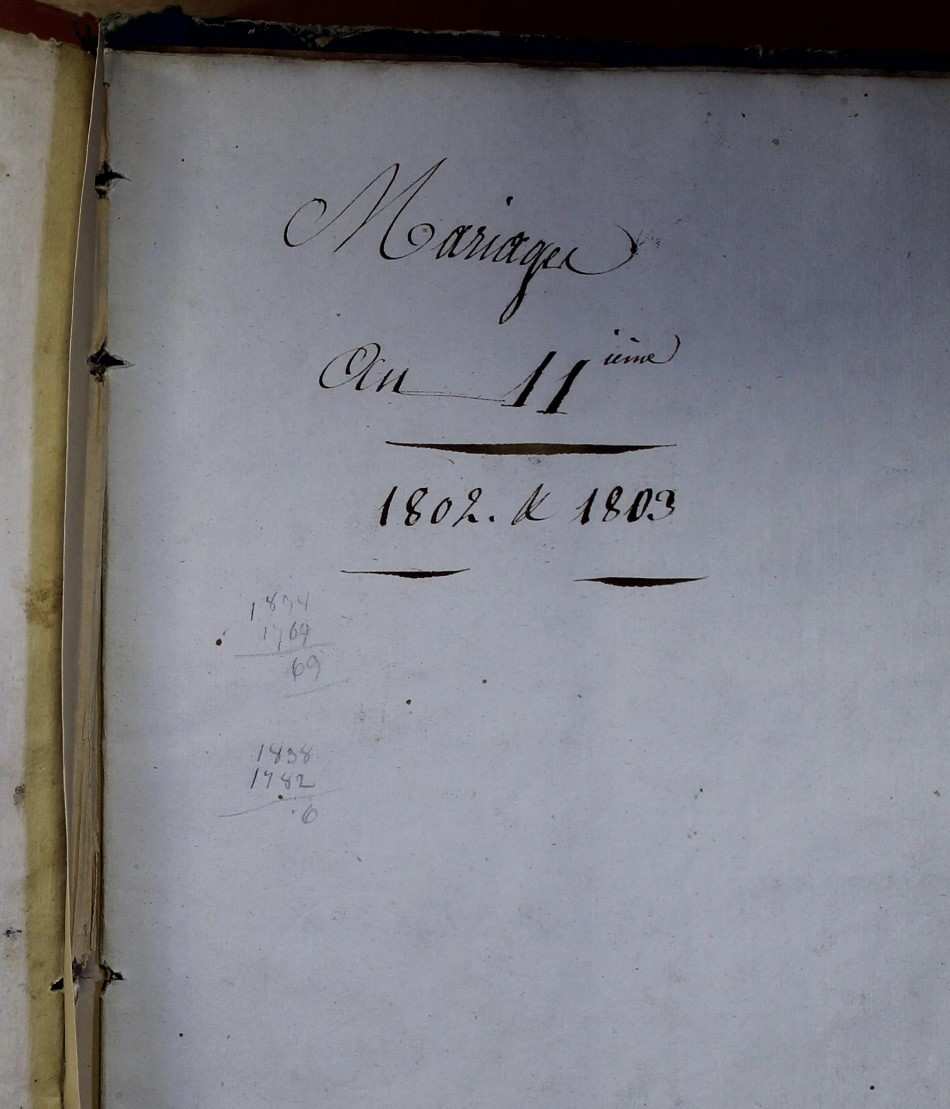 Mariages
An 11 ième
1802. & 1803
1834
1764
69
1838
1782
6